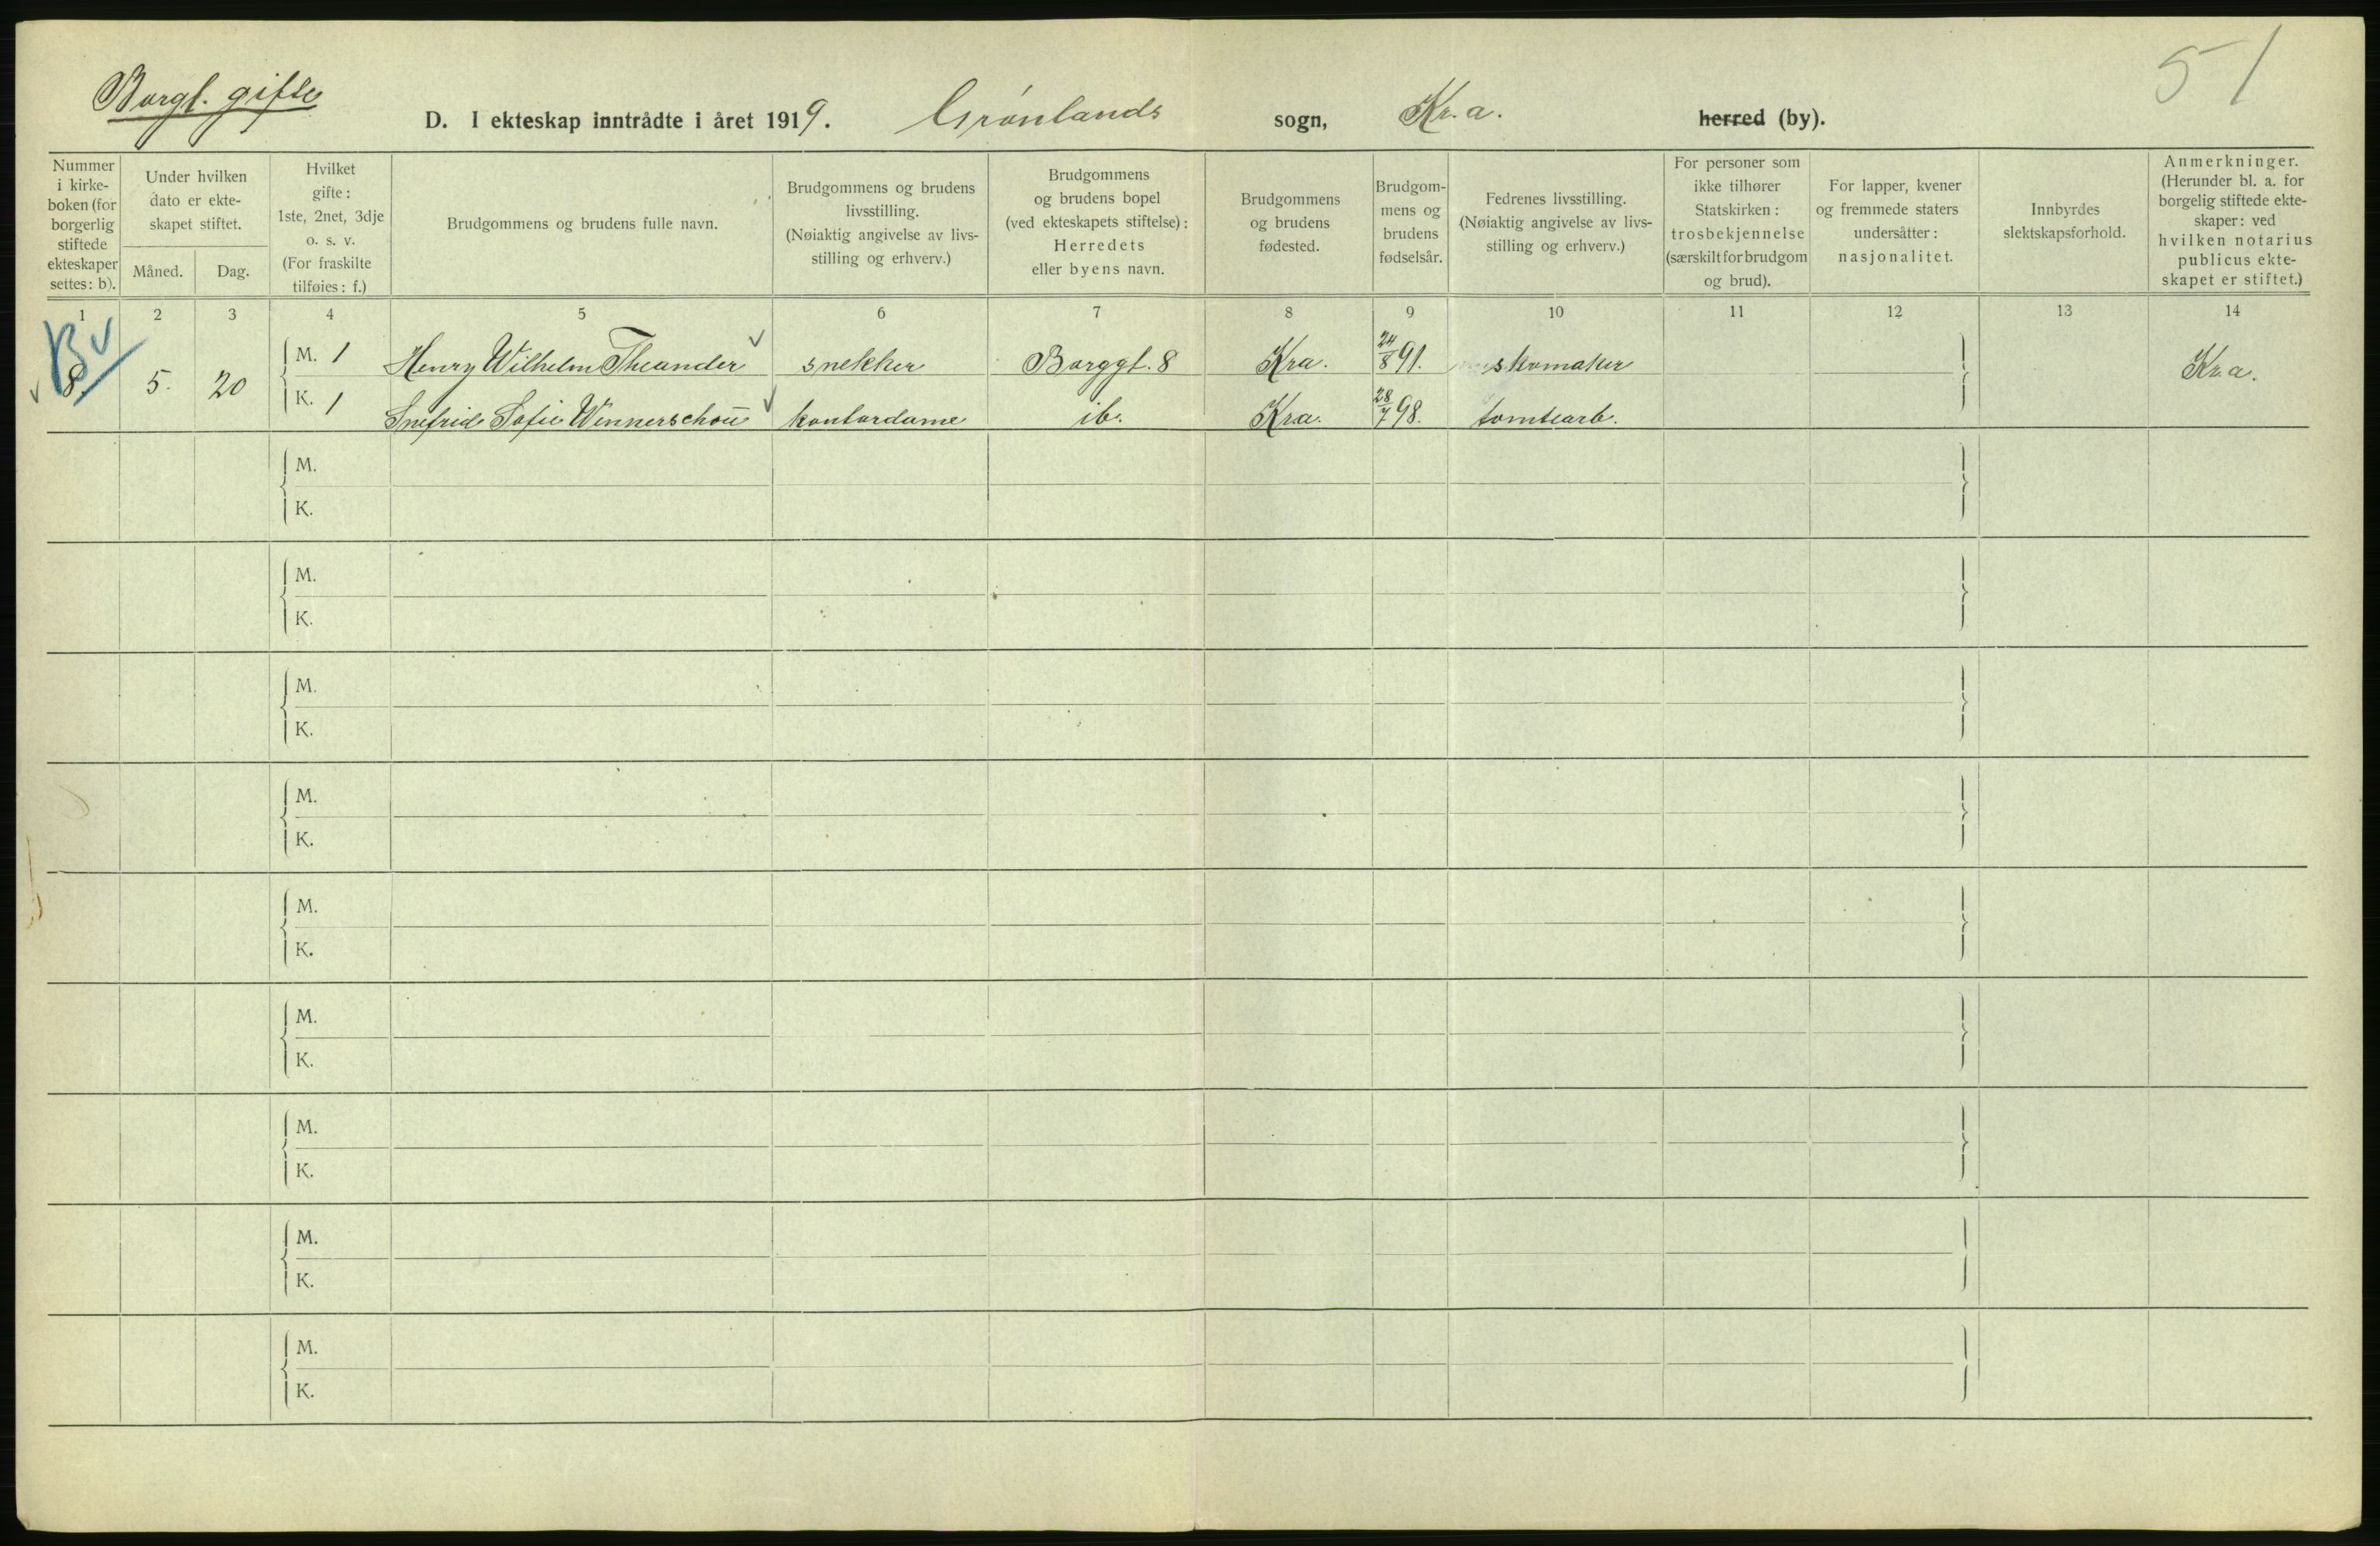 Borgl. gifte
51
D. I ekteskap inntrådte i året 1919. Grønlands sogn, Kr.a. herred (by).
Nummer
i kirke-
boken (for
borgerlig
stiftede
ekteskaper
settes: b).
Under hvilken
dato er ekte-
skapet stiftet.
Måned. Dag.
Hvilket
gifte:
1ste, 2net, 3dje
o. s. v.
(For fraskilte
tilføies: f.)
Brudgommens og brudens fulle navn.
Brudgommens og brudens
livsstilling.
(Nøiaktig angivelse av livs-
stilling og erhverv.)
Brudgommens
og brudens bopel
(ved ekteskapets stiftelse):
Herredets
eller byens navn.
Brudgommens
og brudens
fødested.
Brudgom-
mens og
brudens
fødselsår.
Fedrenes livsstilling.
(Nøiaktig angivelse av livs-
stilling og erhverv.)
For personer som
ikke tilhører
Statskirken:
trosbekjennelse
(særskilt for brudgom
og brud).
For lapper, kvener
og fremmede staters
undersåtter:
nasjonalitet.
Innbyrdes
slektskapsforhold.
Anmerkninger.
(Herunder bl. a. for
borgelig stiftede ekte-
skaper: ved
hvilken notarius
publicus ekte-
skapet er stiftet.)
1 2 3 4 5 6 7 8 9 10 11 12 13 14
B
8 5. 20
M. 1 Henry Wilhelm Theander snekker Borggt. 8 Kra. 24/8 91. skomaker Kr.a.
K. 1 Snefrid Sofie Wennerschou kontordame ib. Kra. 28/7 98. tomtearb.
M.
K.
M.
K.
M.
K.
M.
K.
M.
K.
M.
K.
M.
K.
M.
K.
M.
K.